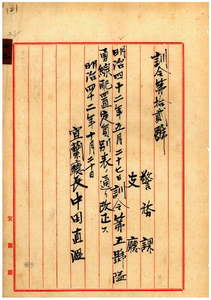 訓令第拾貳號
警務課
支廳
明治四十二年五月二十七日訓令第五號隘
勇線配置定員別表ノ通リ改正ス
明治四十二年十月二十日
宜蘭廳長中田直溫